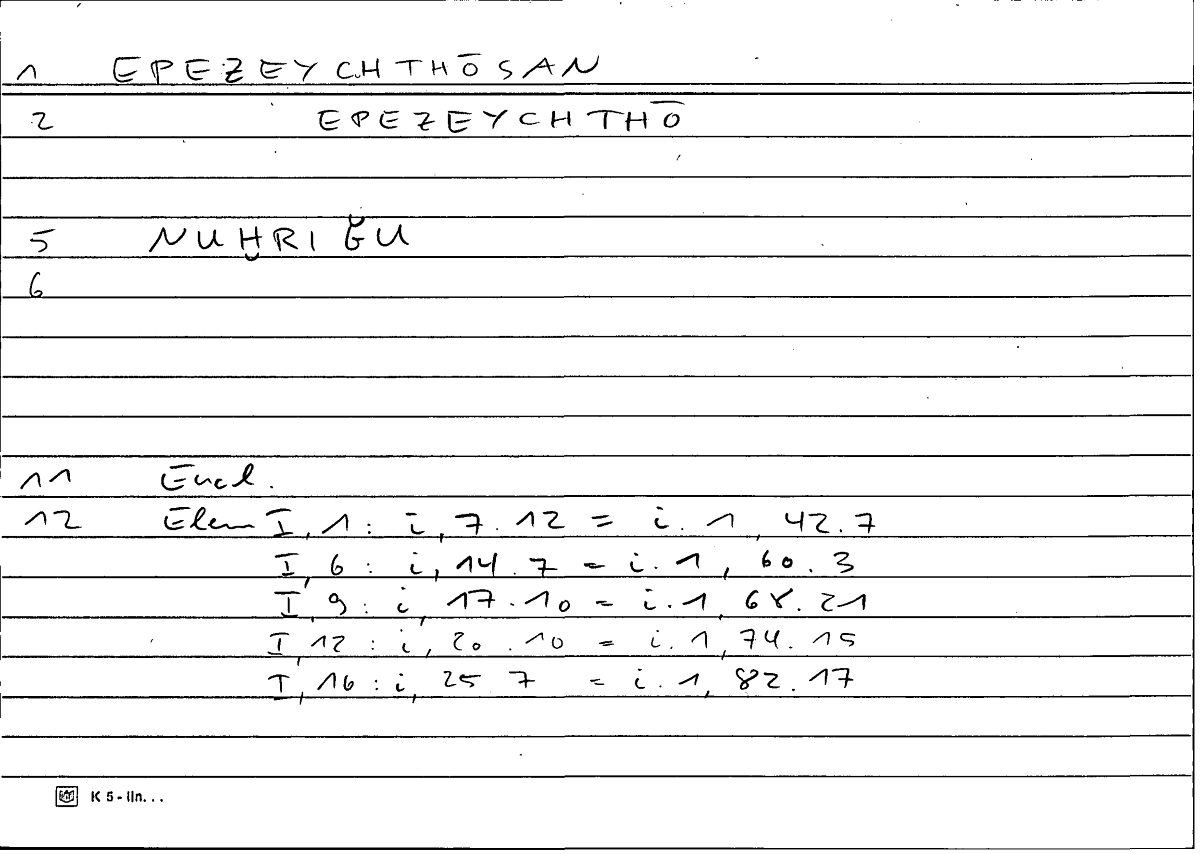 1 EPEZEYCHTHŌSAN
2 EPEZEYCHTHŌ
5 NUḪRIĞU
6
11 Eucl.
12 Elem I, 1: i, 7.12 = i.1, 42.7
I, 6: i, 14.7 = i.1, 60.3
I, 9: i, 17.10 = i.1, 68.21
I, 12: i, 20.10 = i.1, 74.15
I, 16: i, 25 7 = i.1, 82.17
K 5 - lin...